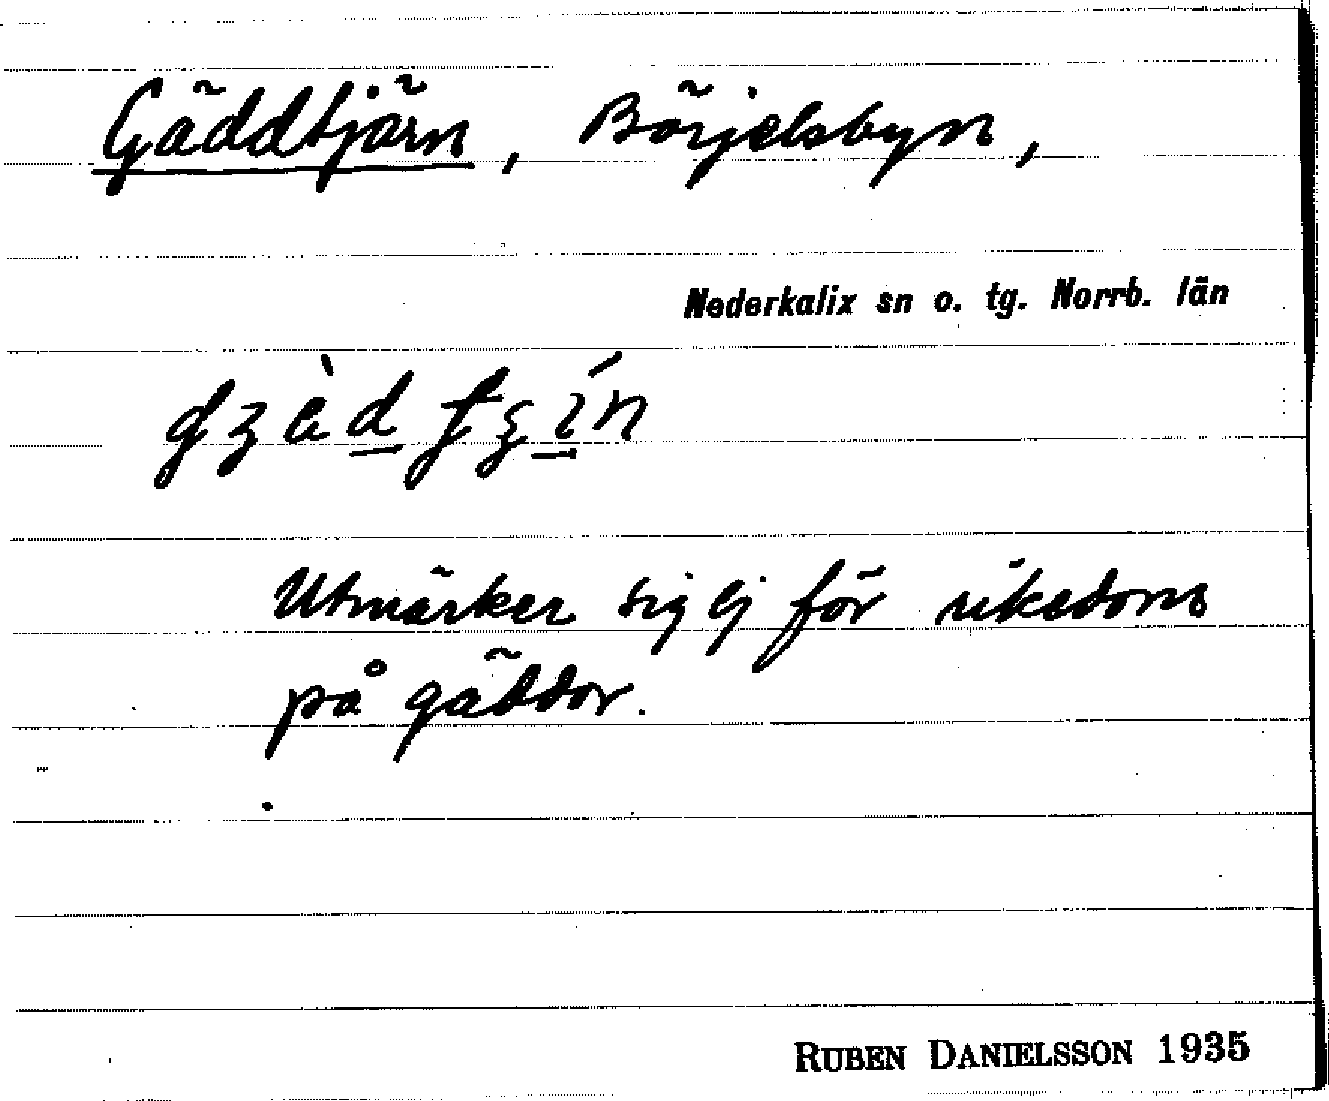 Gäddtjärn, Börjelsbyn,
Nederkalix sn o. tg. Norrb. län
Utmärker sig ej för rikedom
på gäddor.
RUBEN DANIELSSON 1935